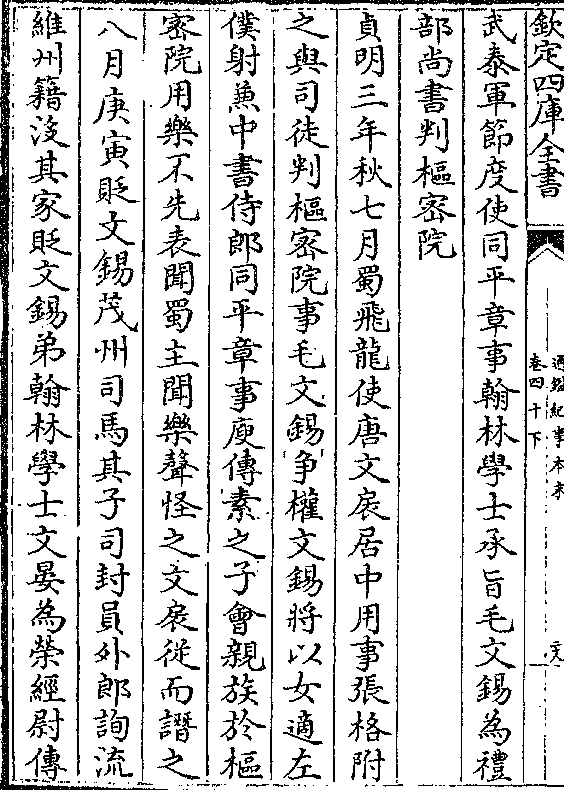 欽定四庫全書
通鑑紀事本末
卷四十下
武泰軍節度使同平章事翰林學士承旨毛文錫為禮
部尚書判樞宻院
貞明三年秋七月蜀飛龍使唐文扆居中用事張格附
之與司徒判樞宻院事毛文錫爭權文錫將以女適左
僕射兼中書侍郎同平章事庾傳素之子會親族於樞
宻院用樂不先表聞蜀主聞樂聲怪之文扆從而譖之
八月庚寅貶文錫茂州司馬其子司封員外郎詢流
維州籍沒其家貶文錫弟翰林學士文晏為榮經尉傳